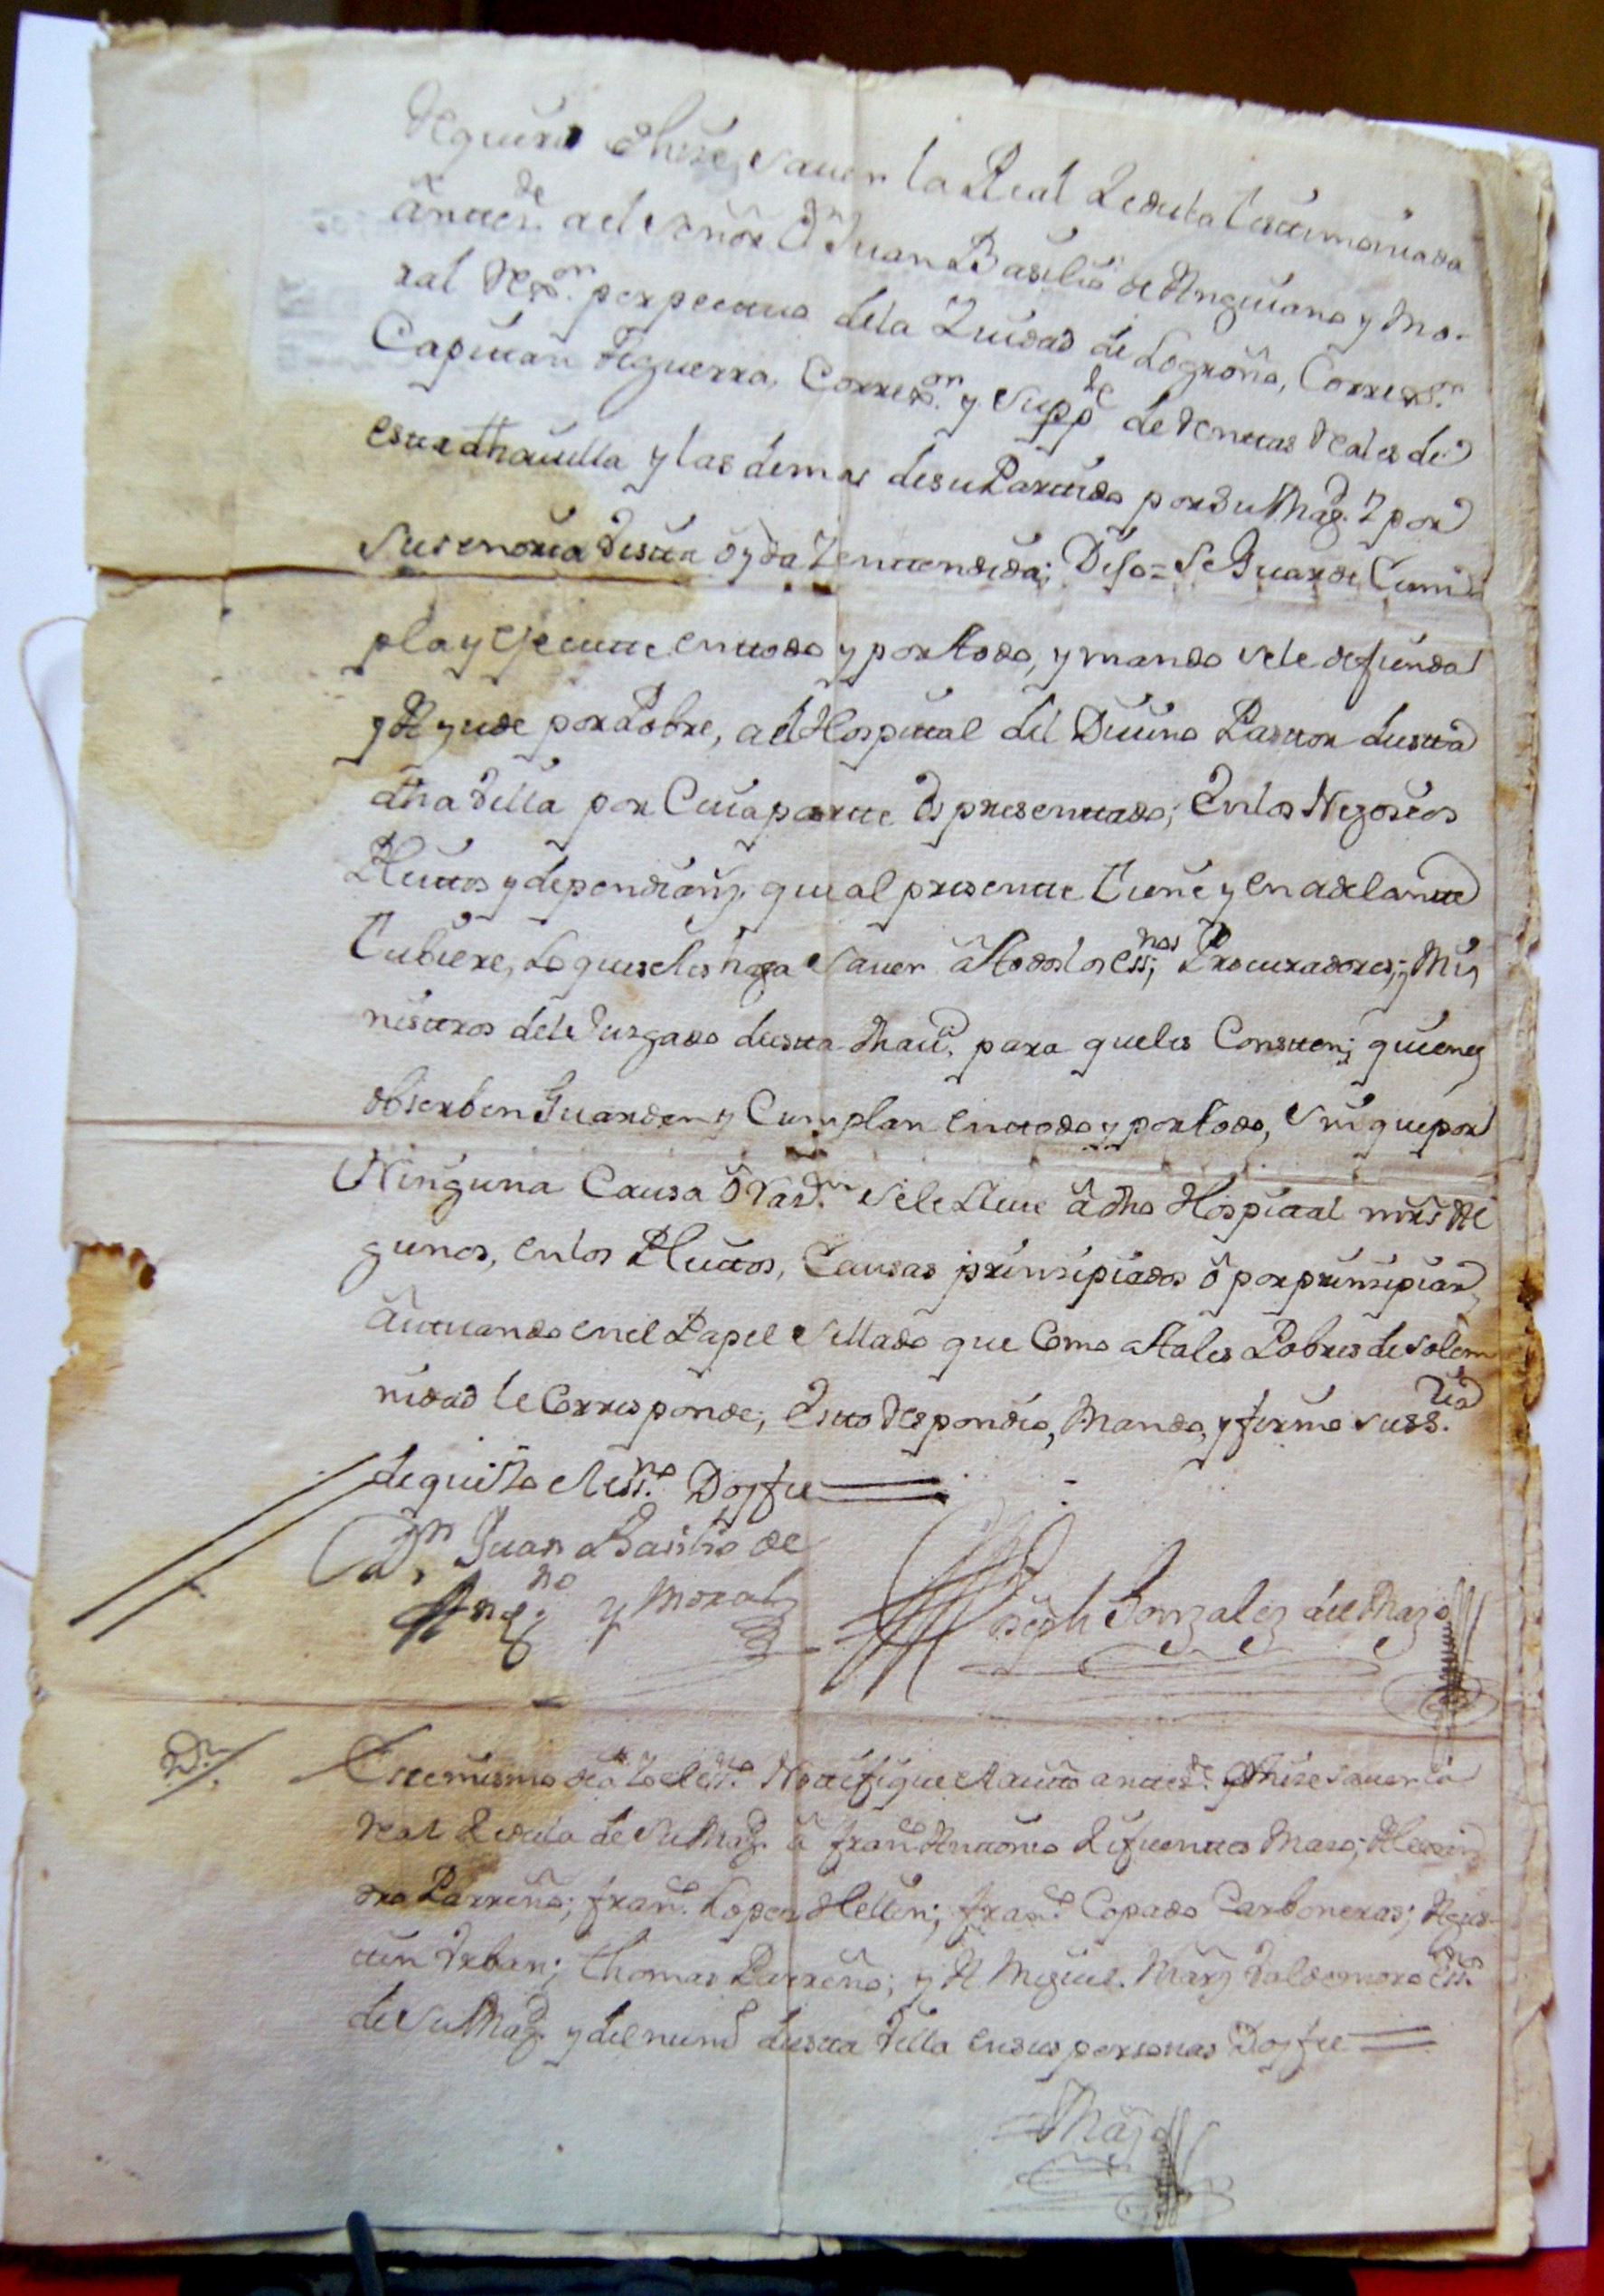 Requeri è hize, sauer la Real Zedula testimoniada
anteze.de al señor Dn Juan Basilio de Anguiano y Mo-
ral Rex.or perpettuo dela Ziudad de Logroño, Correx.or
Capittan Aguerra, Correx.or y Supp.te de Renttas Reales de
estta dha uilla y las demas desu Parttido por Su Magd. Y por
Su señoria Vistta oyda Y enttendida; Dijo = Se Guarde Cum-
pla y ejecutte enttodo y por todo, y mando sele defienda
y Ayude por Pobre, al Hospittal del Diuino Pasttor desta
dha Villa por Cuia partte Es presenttado; En los Negosios
Pleittos y dependienz.s que al presentte tiene y en adelantte
tubiere, Lo que seles haga sauer a todos los ess.nos Procuradores; y Mi-
nisttros deste Jusgado destta dha uª. para que les Constten; quienes
obserben Guarden y Cumplan enttodo y por todo, sin que por
Ninguna Causa ô Raz.on sele lleue â dho Hospittal mrs Al
gunos, en los Pleittos, Causas prinsipiados ô por prinsipiar,
âuttuando en el Papel sellado que Como a tales Pobres de solem
nidad le Corresponde; Estto Respondio, Mando, y firmo su ss.ria
de que Yo el ess.no Doy fee
Dn Juan Basilio de
Ang.no y Moral
Joseph Gonzalez del Mazo
Estte mismo dia Yo el ess.no Nottifique el autto anttez.te y hize sauer la
Real Zedula de Su Magd. â fran.co Anttonio Zifuenttes Maro; Alexan
dro Parreño; fran.co Lopez Hellin; fran.co Copado Carboneras; Agus-
ttin Vrban; thomas Parreño; y A Miguel Marz Valdemoro ess.no
de Su Magd. y del num.o destta Villa en sus personas Doy fee
Mazo